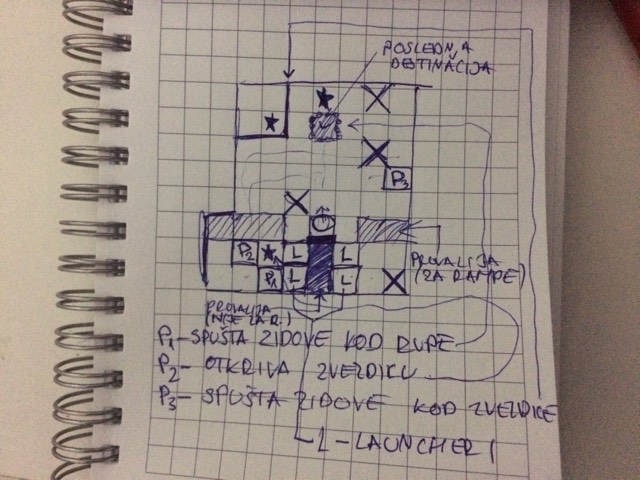 POSLEDNJA
DESTINACIJA
P3
P2
L
L
P1
L
L
PROVALIJA
(ZA RAMPE)
PROVALIJA
(NIJE ZA R.)
P1 - SPUŠTA ZIDOVE KOD RUPE
P2 - OTKRIVA ZVEZDICU
P3 - SPUŠTA ZIDOVE KOD ZVEZDICE
L - LAUNCHERI